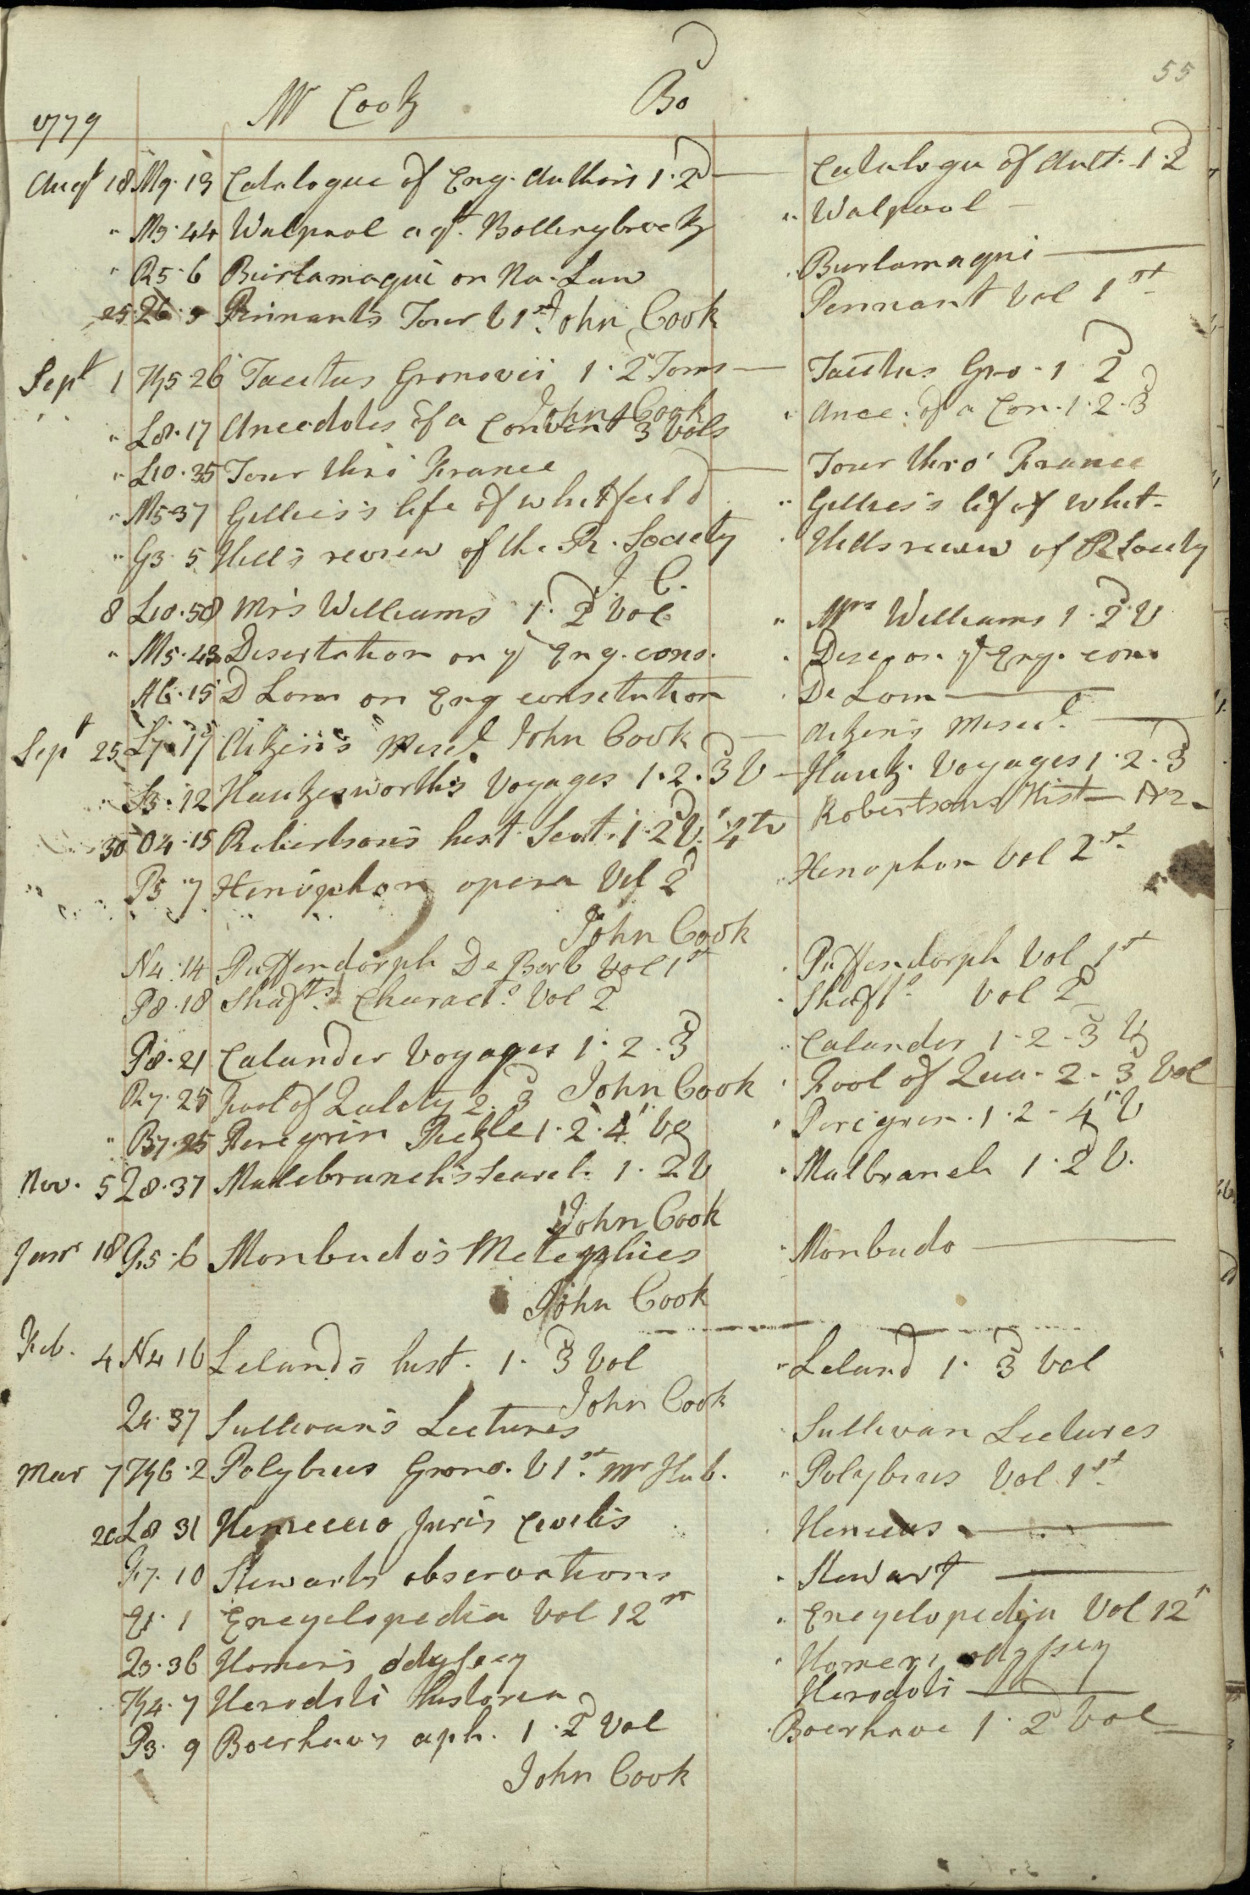 55
1779 Mr Cook Bo
Augt 18 M9·13 Catalogue of Eng. Authors 1·2d — Catalogu of Auth. 1·2
" M3·44 Walpool agt. Bollingbrook " Walpool —
" R5·6 Burlamaqui on Na. Law Burlamaqui —
25 9 Pinnants Tour V 1st John Cook Pennant Vol 1st
Sept 1 5·26 Tacitus Gronovii 1·2d Toms — Tacitus Gro· 1 2d
John Cook
" L8·17 Anecdotes of a Convent 3 Vols " Anec. of a Con. 1·2·3
" L10·35 Tour thro' France — Tour thro' France
" M5·37 Gillies's life of whitfield " Gillies's lif of whit-
" G3·5 Hill's review of the R. Society " Hills reviw of R Society
J. C.
8 L10·58 Mrs Williams 1·2d Vol " Mrs Williams 1·2d V
" M5·43 Disertation on ye Eng. cons. " Dise. on ye Eng. con.
A6·15 D Lom on Eng constitution De Lom —
Sept 25 L7·17 Aikin's Miscel. John Cook — Aikin's Miscel. —
L3·12 Haukesworth's Voyages 1·2·3d V — Hauk. Voyages 1·2·3d
30 O4·15 Robertson's hist Scot. 1·2d V. 4to Robertsons Hist
P5·7 Xenophon opera Vol 2d Xenophon Vol 2d
John Cook
N4·14 Puffendorph De Barb Vol 1st " Puffendorph Vol 1st
P8·18 Shafts. Charact. Vol 2d " Shafts. Vol 2d
P8·21 Calander Voyages 1·2·3d " Calander 1·2·3d V
R7·25 Fool of Quality 2·3d John Cook " Fool of Qua· 2·3d Vol
" B7·25 Peregrin Pickle 1·2·4th Vo " Peregrin· 1·2·4th V
Nov. 5 Q8·37 Malebranch's Search 1·2d V " Malbranch 1·2d V.
John Cook
Janr 18 G5·6 Monbudo's Metephics " Monbudo —
John Cook
Feb. 4 N4 16 Leland's hist. 1· 3d Vol " Leland 1· 3d Vol
John Cook
Q4·37 Sullivan's Lectures Sullivan Lectures
Mar 7 6·2 Polybius Grono. V 1st. Mr Hub. " Polybius Vol 1st
20 L8 31 Heineccio Juris Civilis " Heneccius —
F7·10 Stewarts observations " Stewart —
1 Encyclopedia Vol 12th " Encyclopedia Vol 12th
Q3·36 Homer's Odyssey " Homeri odyssey
4·7 Herodoti historia Herodoti —
P3·9 Boerhaves aph. 1·2d Vol Boerhave 1·2d Vol —
John Cook